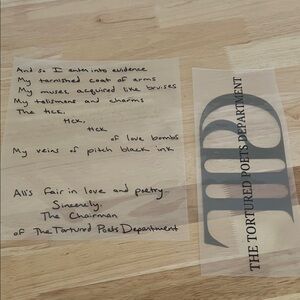 And so I enter into evidence
My tarnished coat of arms
My muses, acquired like bruises
My talismans and charms
The tick,
tick,
tick
of love bombs
My veins of pitch black ink
All's fair in love and poetry
Sincerely,
The Chairman
of The Tortured Poets Department
TTPD
THE TORTURED POETS DEPARTMENT